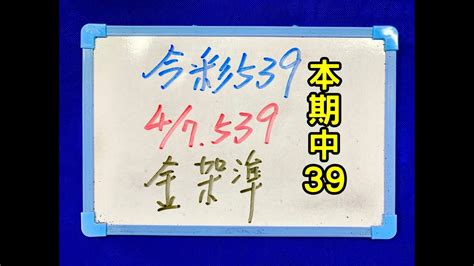 今彩539
4/7.539
金架準
本期中39